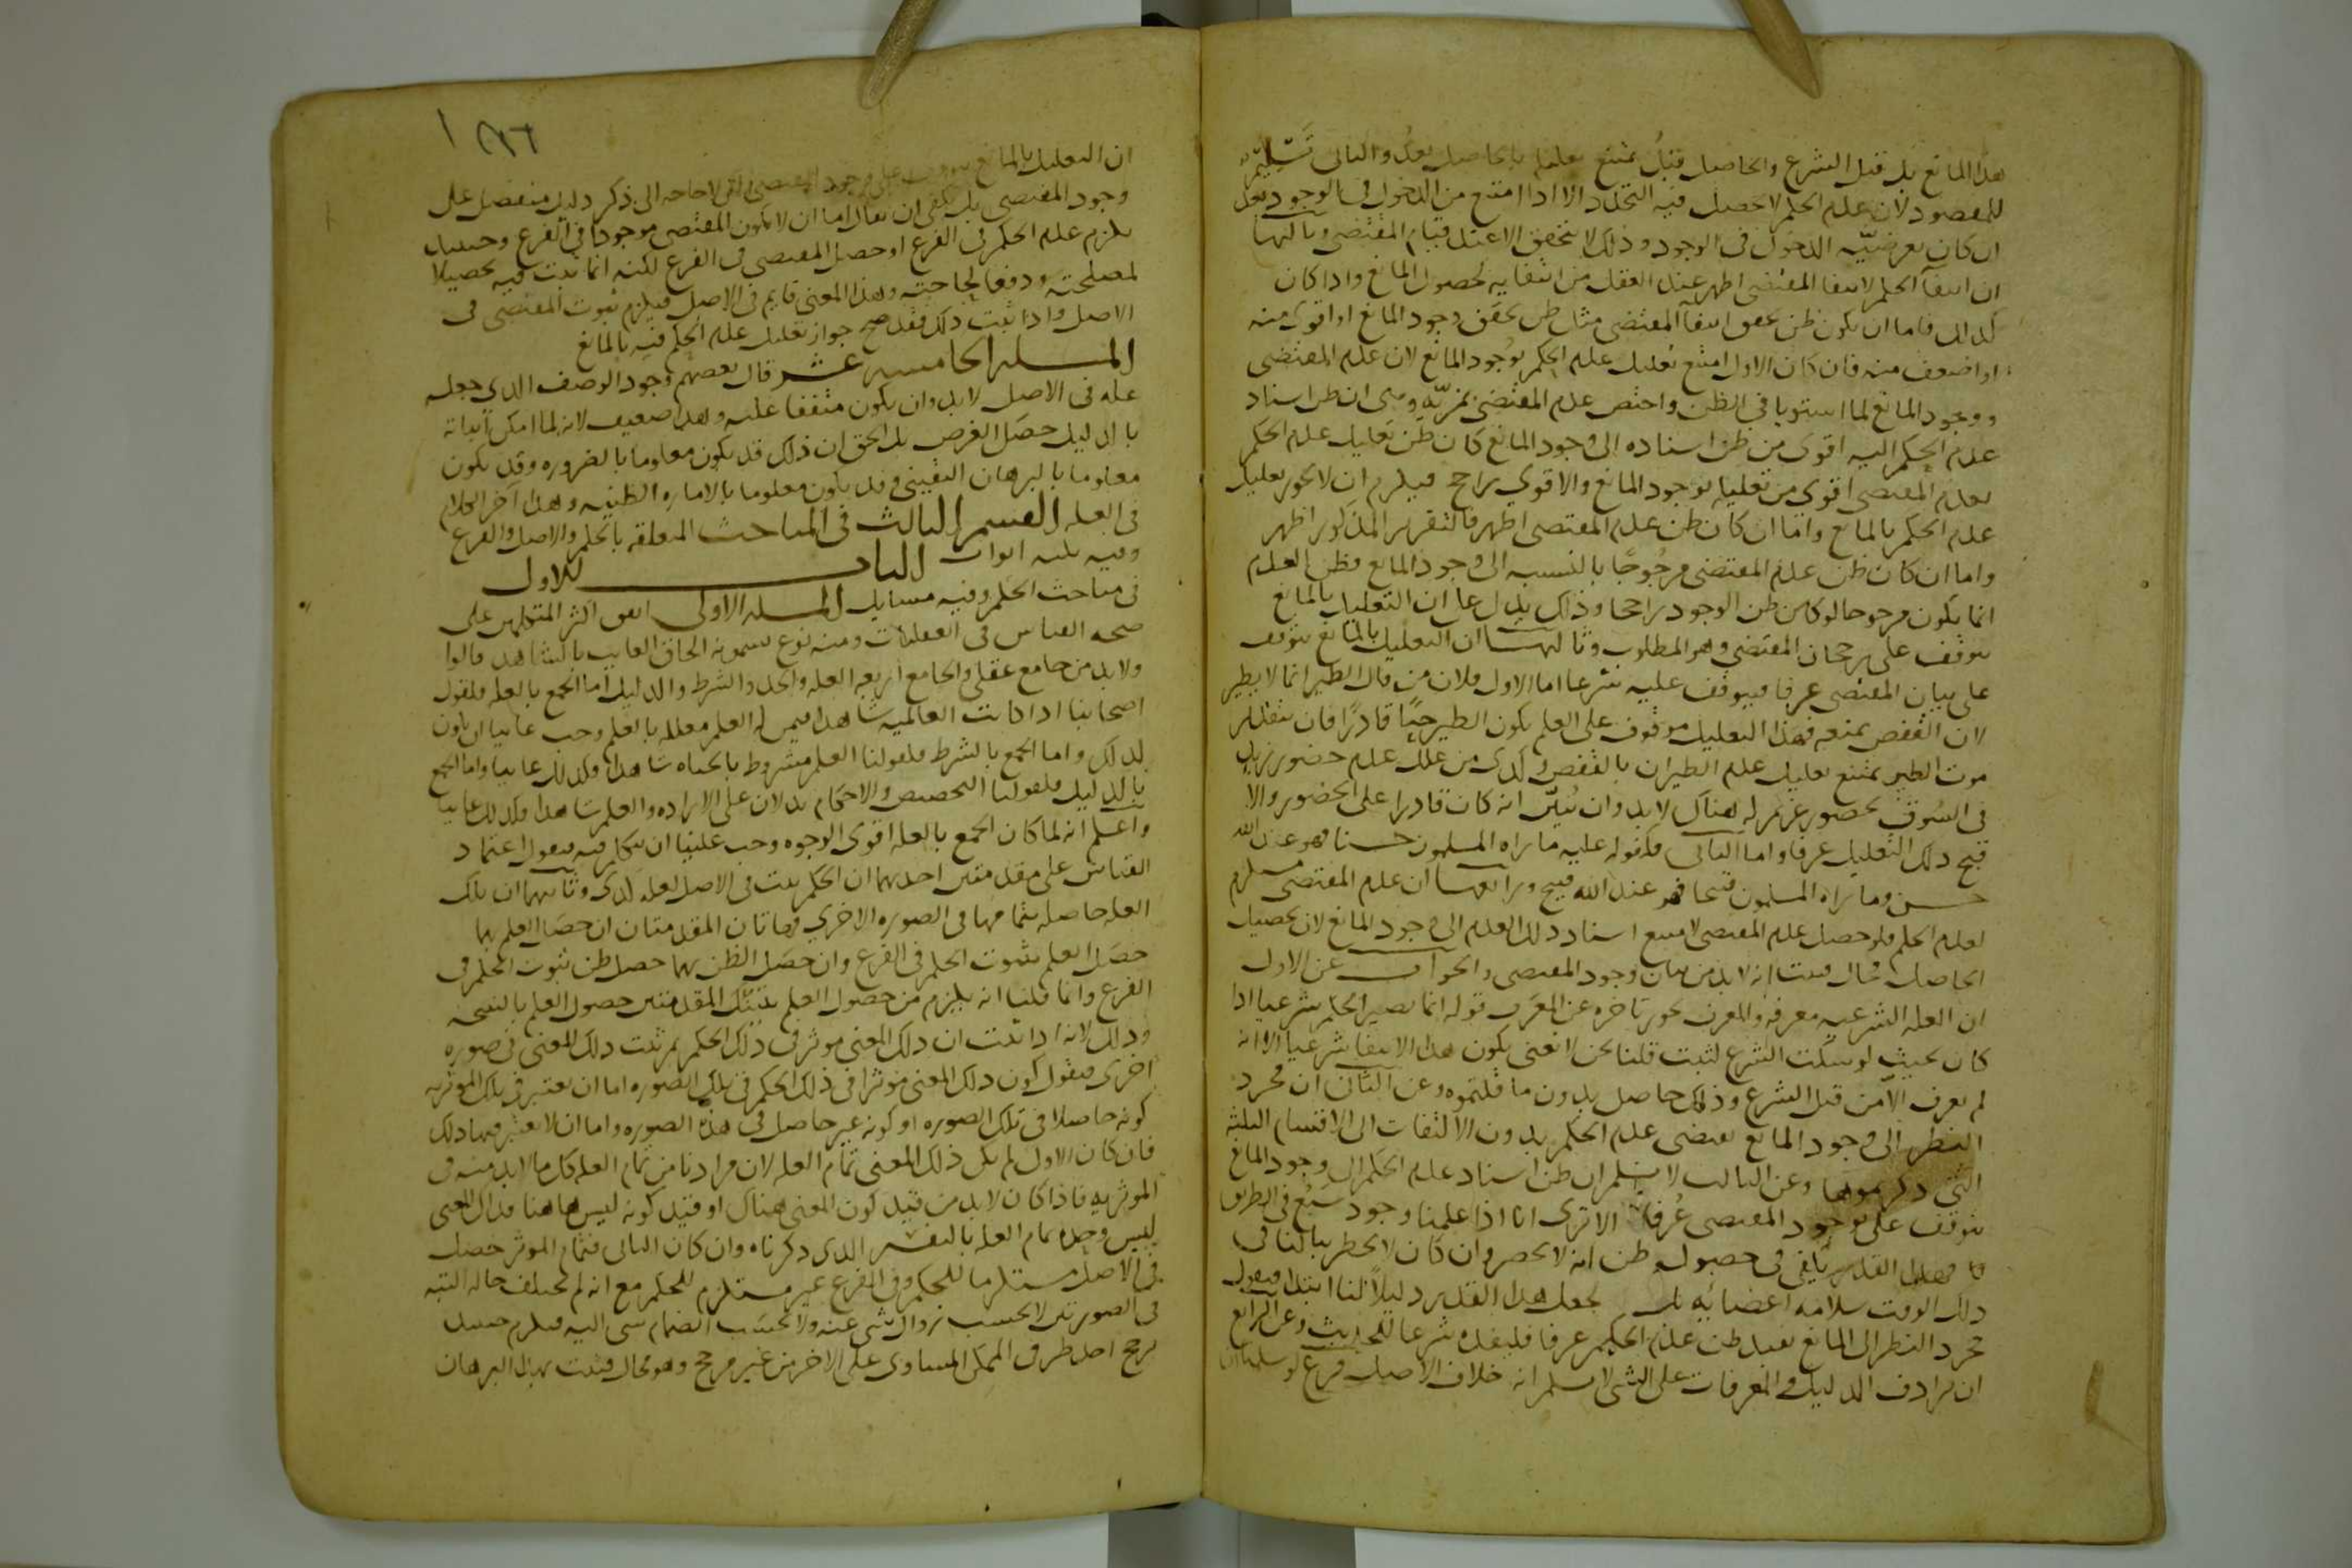 هذا المانع بل قبل الشرع والحاصل قبل يمتنع تعليله بالحاصل بعد والثاني تسليم
للمقصود لان عدم الحكم لا حصل فيه التجدد الا اذا امتنع من الدخول في الوجود بعد
ان كان بعرضية الدخول في الوجود وذلك لا يتحقق الا عند قيام المقتضي وثالثها
ان انتفا الحكم لانتفا المقتضى اظهر عند العقل من انتفايه لحصول المانع واذا كان
كذلك فاما ان يكون ظن تحقق انتفا المقتضى مثل ظن تحقق وجود المانع او اقوى منه
او اضعف منه فان كان الاول امتنع تعليل عدم الحكم بوجود المانع لان عدم المقتضى
ووجود المانع لما استويا في الظن واختص عدم المقتضى بمزية وهى ان ظن اسناد
عدم الحكم اليه اقوى من ظن اسناده الى وجود المانع كان ظن تعليل عدم الحكم
بعدم المقتضى اقوى من تعليله بوجود المانع والاقوى راجح فيلزم ان لا يجوز تعليل
عدم الحكم بالمانع واما ان كان ظن عدم المقتضى اظهر فالتقرير المذكور اظهر
واما ان كان ظن عدم المقتضى مرجوحا بالنسبه الى وجود المانع فظن العدم
انما يكون مرجوحا لو كان ظن الوجود راجحا وذلك يدل على ان التعليل بالمانع
يتوقف على رجحان المقتضي وهو المطلوب وثالثها ان التعليل بالمانع يتوقف
على بيان المقتضى عرفا فيتوقف عليه شرعا اما الاول فلان من قال الطير انما لا يطير
لان القفص يمنعه فهذا التعليل موقوف على العلم بكون الطير حيا قادرا فان بتقدير
موت الطير يمتنع تعليل عدم الطيران بالقفص وكذى من علل عدم حضور زيد
في السوق بحضور غريم له هناك لا بد وان يبين انه كان قادرا على الحضور والا
قبح ذلك التعليل عرفا واما الثانى فلقوله عليه ما راه المسلمون حسنا فهو عند الله
حسن وما راه المسلمون قبيحا فهو عند الله قبيح ورابعها ان عدم المقتضى مستلزم
لعدم الحكم فلو حصل عدم المقتضى لامتنع اسناد ذلك العدم الى وجود المانع لان تحصيل
الحاصل محال فثبت انه لا بد من بيان وجود المقتضى والجواب عن الاول
ان العله الشرعيه معرفه والمعرف يجوز تاخره عن المعرف قوله انما يصير الحكم شرعيا اذا
كان بحيث لو سكت الشرع لثبت قلنا نحن لا نعنى بكون هذا الانتفا شرعيا الا انه
لم يعرف الا من قبل الشرع وذلك حاصل بدون ما قلتموه وعن الثانى ان مجرد
النظر الى وجود المانع يقتضى عدم الحكم بدون الالتفات الى الاقسام الثلثه
التى ذكرتموها وعن الثالث لا نسلم ان ظن اسناد عدم الحكم الى وجود المانع
يتوقف على بوجود المقتضى عرفا الا ترى انا اذا علمنا وجود سبع في الطريق
فهذا القدر يكفى في حصول ظن انه لا يحضر وان كان لا يخطر ببالنا في
ذلك الوقت سلامه اعضائه بل يجعل هذا القدر دليلا لنا ابتدا فنقول
مجرد النظر الى المانع يفيد ظن عدم الحكم عرفا فليفده شرعا للحديث وعن الرابع
ان ترادف الدليل والمعرفات على الشى لا نسلم انه خلاف الاصل فرع لو سلمنا ان
١٢٦
ان التعليل بالمانع يتوقف على وجود المقتضى لكن لا حاجه الى ذكر دليل منفصل على
وجود المقتضى بل يكفى ان يقال اما ان لا يكون المقتضى موجودا في الفرع وحينئذ
يلزم عدم الحكم في الفرع او حصل المقتضى في الفرع لكنه انما ثبت فيه تحصيلا
لمصلحته ودفعا لحاجته وهذا المعنى قايم في الاصل فيلزم ثبوت المقتضى في
الاصل واذا ثبت ذلك فقد صح جواز تعليل عدم الحكم فيه بالمانع
المسله الخامسه عشر قال بعضهم وجود الوصف الذي جعله
عله في الاصل لا بد وان يكون متفقا عليه وهذا ضعيف لانه لما امكن اثباته
بالدليل حصل الغرض بل الحق ان ذلك قد يكون معلوما بالضروره وقد يكون
معلوما بالبرهان اليقينى وقد يكون معلوما بالاماره الظنيه وهذا آخر الكلام
في العله القسم الثالث في المباحث المتعلقه بالحكم والاصل والفرع
وفيه ثلثه ابواب الباب الاول
في مباحث الحكم وفيه مسايل المسله الاولى اتفق اكثر المتكلمين على
صحه القياس في العقليات ومنه نوع يسمونه الحاق الغايب بالشاهد قالوا
ولا بد من جامع عقلى والجامع اربعه العله والحد والشرط والدليل اما الجمع بالعله فلقول
اصحابنا اذا كانت العالميه شاهدا فيمن له العلم معلله بالعلم وجب غايبا ان يكون
كذلك واما الجمع بالشرط فلقولنا العلم مشروط بالحياه شاهدا فكذلك غايبا واما الجمع
بالدليل فلقولنا التخصيص والاحكام يدلان على الاراده والعلم شاهدا فكذلك غايبا
واعلم انه لما كان الجمع بالعله اقوى الوجوه وجب علينا ان نتكلم فيه فنقول اعتماد
القياس على مقدمتين احديهما ان الحكم يثبت في الاصل لعله كذى وثانيهما ان تلك
العله حاصله بتمامها في الصوره الاخري فهاتان المقدمتان ان حصل العلم بهما
حصل العلم بثبوت الحكم في الفرع وان حصل الظن بهما حصل ظن ثبوت الحكم في
الفرع وانما قلنا انه يلزم من حصول العلم بتينك المقدمتين حصول العلم بالنتيجه
وذلك لانه اذا ثبت ان ذلك المعنى موثر في ذلك الحكم ثم ثبت ذلك المعنى في صوره
اخرى فنقول كون ذلك المعنى موثرا في ذلك الحكم في تلك الصوره اما ان يعتبر في تلك الموثريه
كونه حاصلا في تلك الصوره او كونه غير حاصل في هذه الصوره واما ان لا يعتبر فيها ذلك
فان كان الاول لم يكن ذلك المعنى تمام العله لان مرادنا من تمام العله كل ما لا بد منه في
الموثريه فاذا كان لا بد من قيد كون المعنى هناك او قيد كونه ليس هاهنا فذاك المعنى
ليس وحده تمام العله بالتفسير الذي ذكرناه وان كان الثانى فتمام الموثر حصل
في الاصل مستلزما للحكم وفي الفرع غير مستلزم للحكم مع انه لم يختلف حاله البته
في الصورتين لا بحسب زوال شى عنه ولا بحسب انضمام شى اليه فيلزم حينئذ
ترجح احد طرفي الممكن المساوى على الاخر من غير مرجح وهو محال فثبت بهذا البرهان